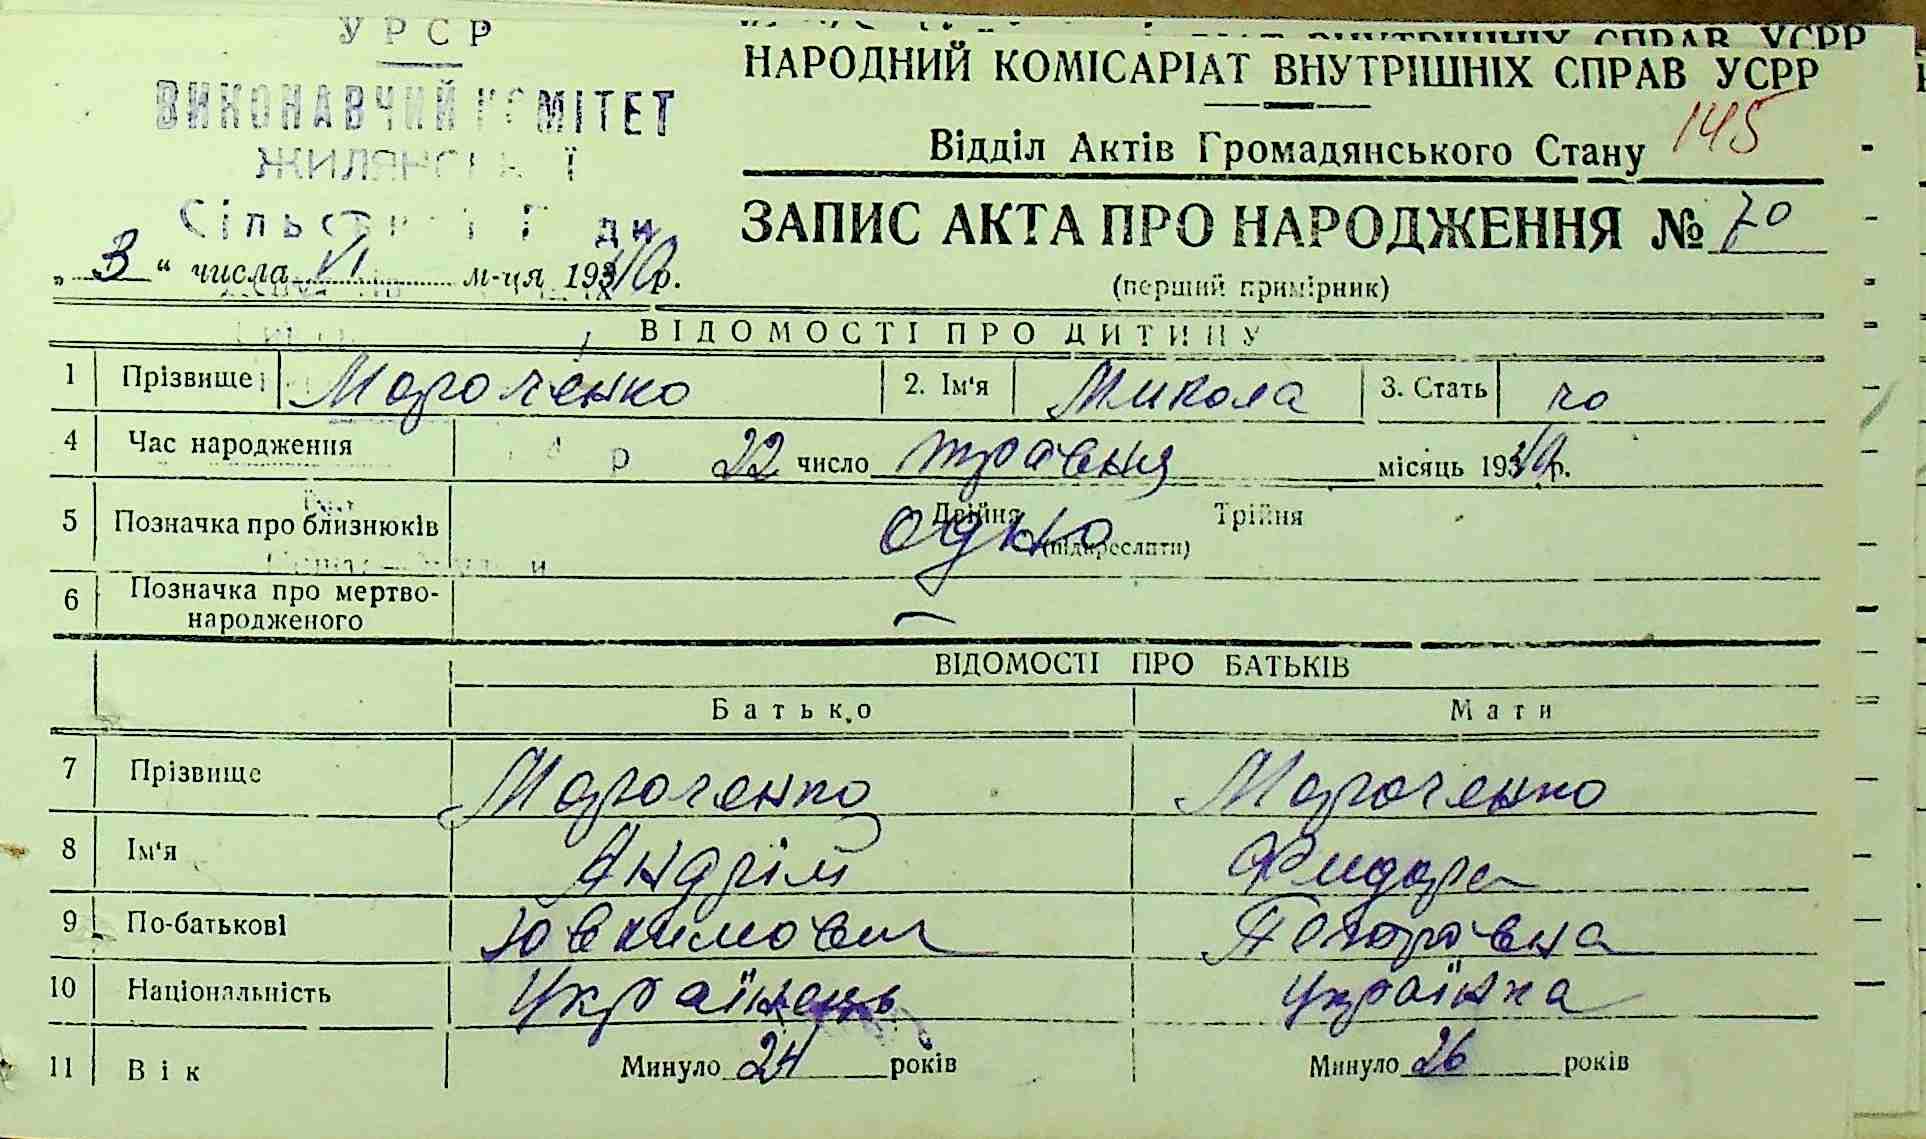 УРСР
ВИКОНАВЧИЙ КОМІТЕТ
НАРОДНИЙ КОМІСАРІАТ ВНУТРІШНІХ СПРАВ УСРР
145
Відділ Актів Громадянського Стану
ЗАПИС АКТА ПРО НАРОДЖЕННЯ № 70
„ 3 “ числа VI м-ця 1940 р.
(перший примірник)
ВІДОМОСТІ ПРО ДИТИНУ
1 Прізвище Мароченко 2. Ім'я Микола 3. Стать чо
4 Час народження 22 число травня місяць 1940 р.
5 Позначка про близнюків Двійня Трійня
одно (підкреслити)
6 Позначка про мертво-
народженого —
ВІДОМОСТІ ПРО БАТЬКІВ
Батько Мати
7 Прізвище Мароченко Мароченко
8 Ім'я Андрій Фидора
9 По-батькові Петровна
10 Національність Українець Українка
11 Вік Минуло 24 років Минуло 26 років